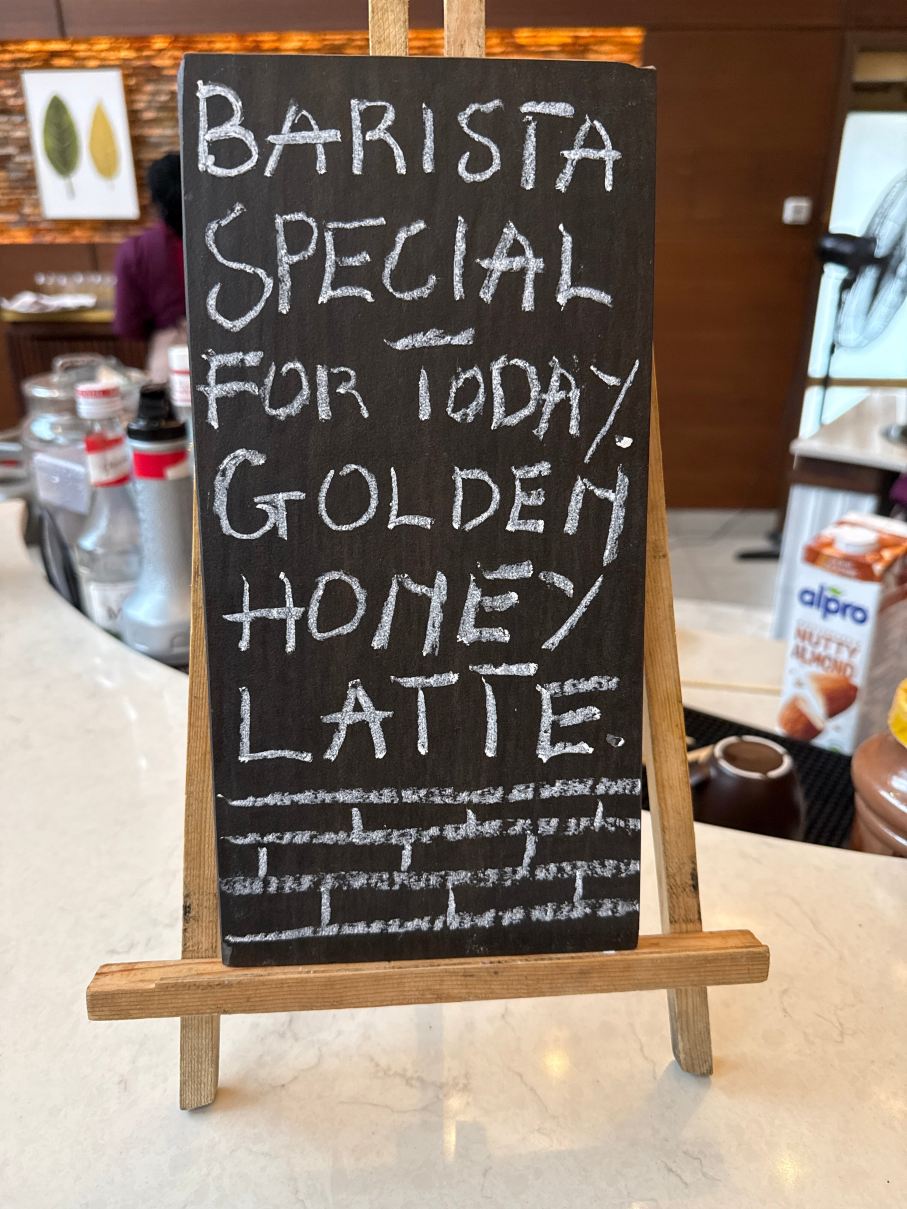 BARISTA
SPECIAL
FOR TODAY.
GOLDEN
HONEY
LATTE.
alpro
NUTTY
ALMOND